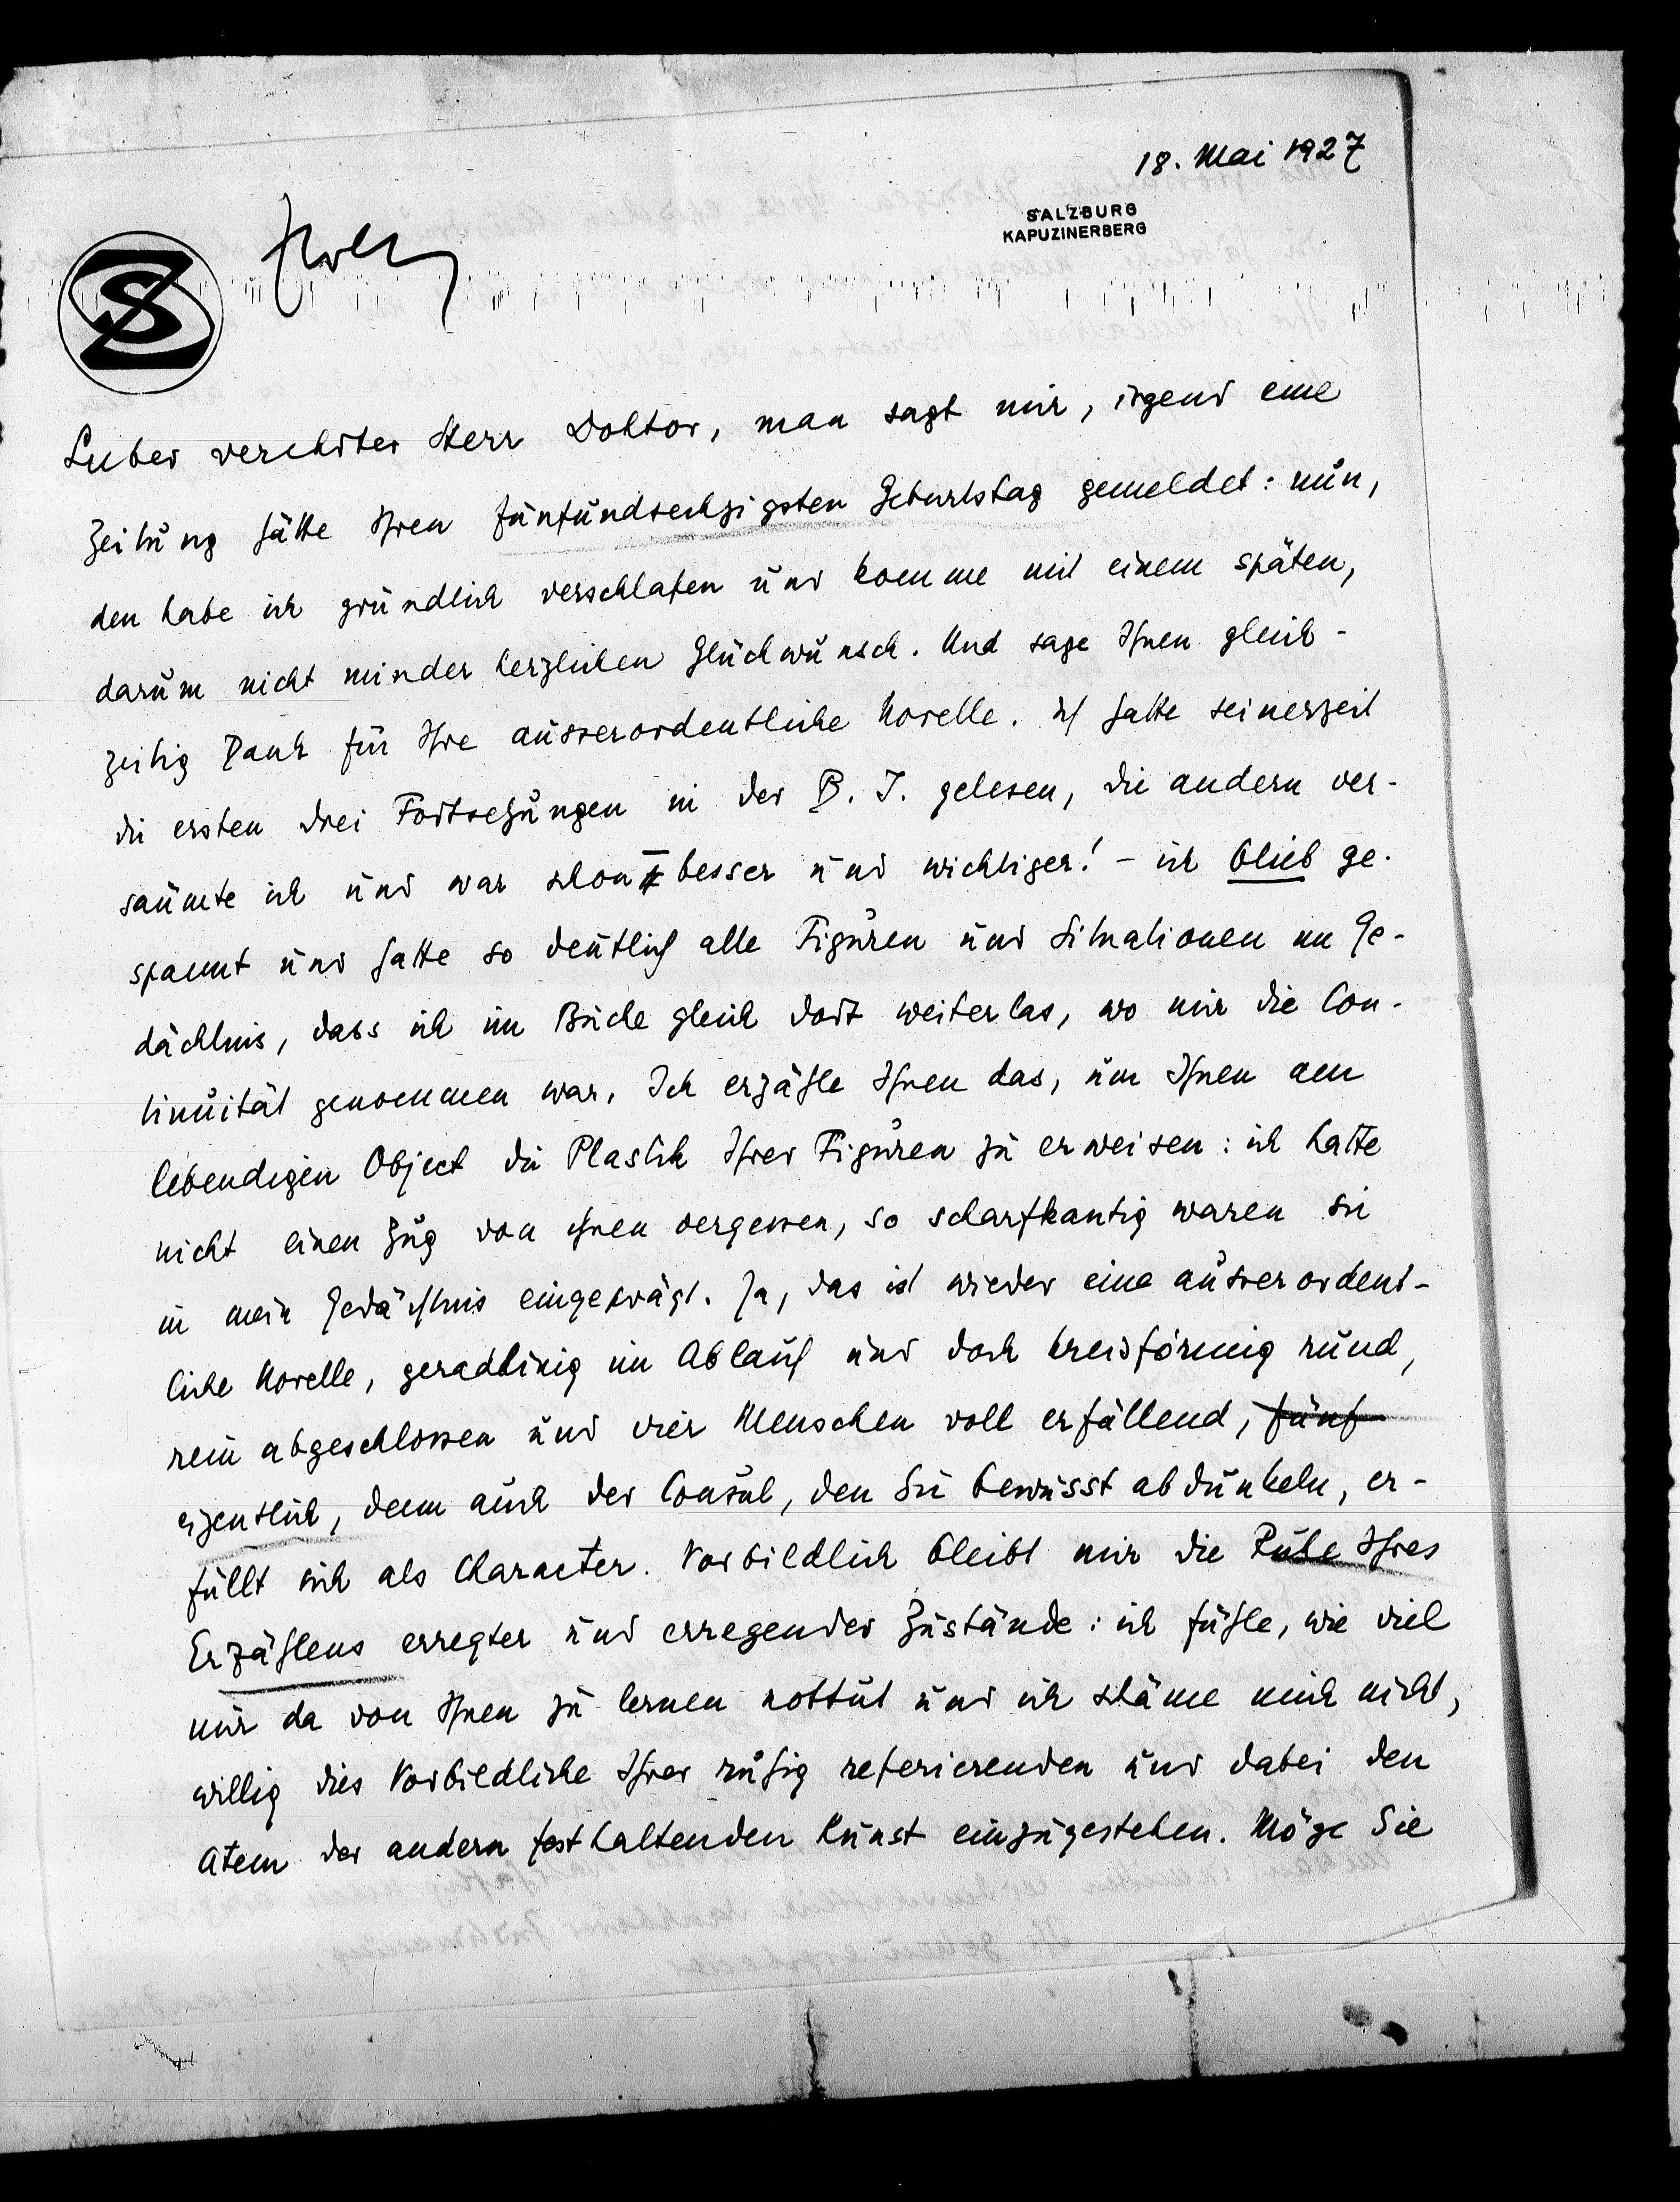 18. Mai 1927
SALZBURG
KAPUZINERBERG
SZ
Zweig
Lieber verehrter Herr Doktor, man sagt mir, irgend eine
Zeitung hätte Ihren fünfundsechzigsten Geburtstag gemeldet: nun,
den habe ich gründlich verschlafen und komme mit einem späten,
darum nicht minder herzlichen Glückwunsch. Und sage Ihnen gleich-
zeitig Dank für Ihre ausserordentliche Novelle. Ich hatte seinerzeit
die ersten drei Fortsetzungen in der B. I. gelesen, die andern ver-
säumte ich und war schon besser und wichtiger! – ich blieb ge-
spannt und hatte so deutlich alle Figuren und Situationen im Ge-
dächtnis, dass ich im Buche gleich dort weiterlas, wo mir die Con-
tinuität genommen war. Ich erzähle Ihnen das, um Ihnen am
lebendigen Object die Plastik Ihrer Figuren zu erweisen: ich hatte
nicht einen Zug von ihnen vergessen, so scharfkantig waren sie
in mein Gedächtnis eingeprägt. Ja, das ist wieder eine ausserordent-
liche Novelle, geradlinig im Ablauf und doch kreisförmig rund,
rein abgeschlossen und vier Menschen voll erfüllend, fünf
eigentlich, denn auch der Consul, den Sie bewusst abdunkeln, er-
füllt sich als Character. Vorbildlich bleibt mir die Ruhe Ihres
Erzählens erregter und erregender Zustände: ich fühle, wie viel
mir da von Ihnen zu lernen nottut und ich schäme mich nicht,
willig dies Vorbildliche Ihrer ruhig referierenden und dabei den
Atem der andern festhaltenden Kunst einzugestehen. Möge Sie